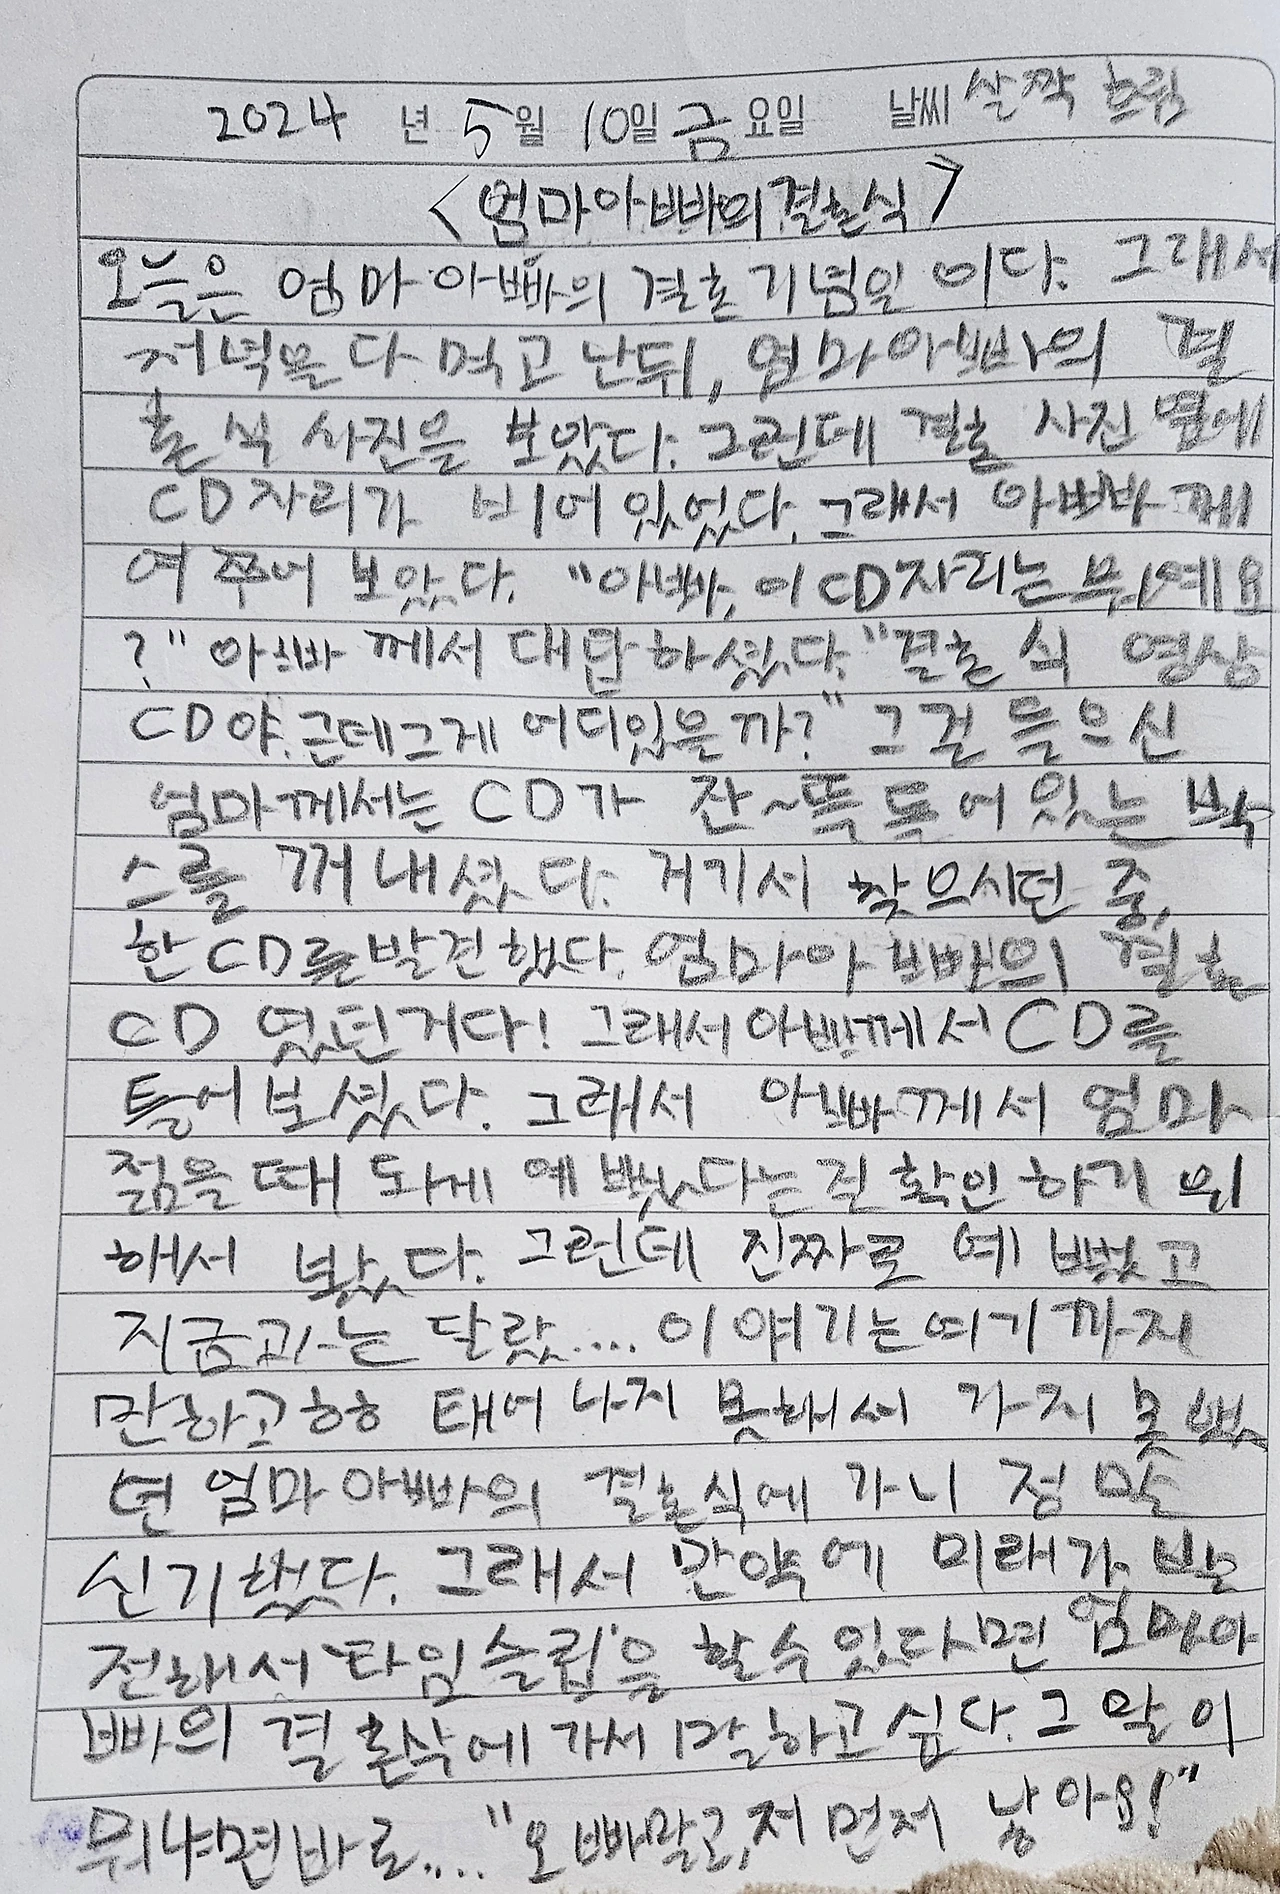 2024 년 5월 10일 금요일 날씨 살짝 흐림
<엄마아빠의결혼식>
오늘은 엄마 아빠의 결혼기념일 이다. 그래서
저녁을 다 먹고 난뒤, 엄마아빠의 결
혼식 사진을 보았다. 그런데 결혼 사진 옆에
CD자리가 비어있었다. 그래서 아빠께
여쭈어 보았다. "아빠, 이CD자리는 뭐예요
?" 아빠께서 대답하셨다. "결혼식 영상
CD야. 근데그게 어디있을까?" 그걸 들으신
엄마께서는 CD가 잔~뜩 들어있는 박
스를 꺼내셨다. 거기서 찾으시던 중,
한 CD를발견했다. 엄마아빠의 결혼
CD 였던거다! 그래서아빠께서CD를
틀어보셨다. 그래서 아빠께서 엄마
젊을때 되게 예뻤다는걸 확인하기 위
해서 봤다. 그런데 진짜로 예뻤고
지금과는 달랐.... 이야기는여기까지
만하고ㅎㅎ 태어나지 못해서 가지 못했
던 엄마아빠의 결혼식에 가니 정말
신기했다. 그래서 만약에 미래가 발
전해서 '타임슬립'을 할수있다면 엄마아
빠의 결혼식에 가서 말하고싶다. 그 말이
뭐냐면바로.... "오빠말고, 저 먼저 낳아요!"